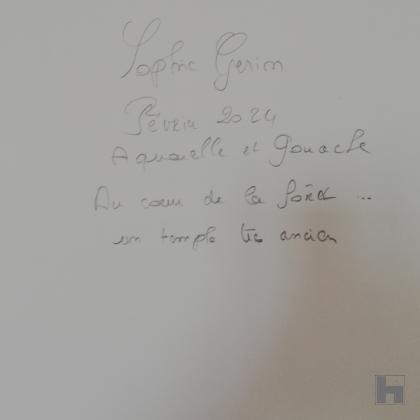 Sophie Gerin
Février 2024
Aquarelle et Gouache
Au cœur de la forêt ...
un temple très ancien